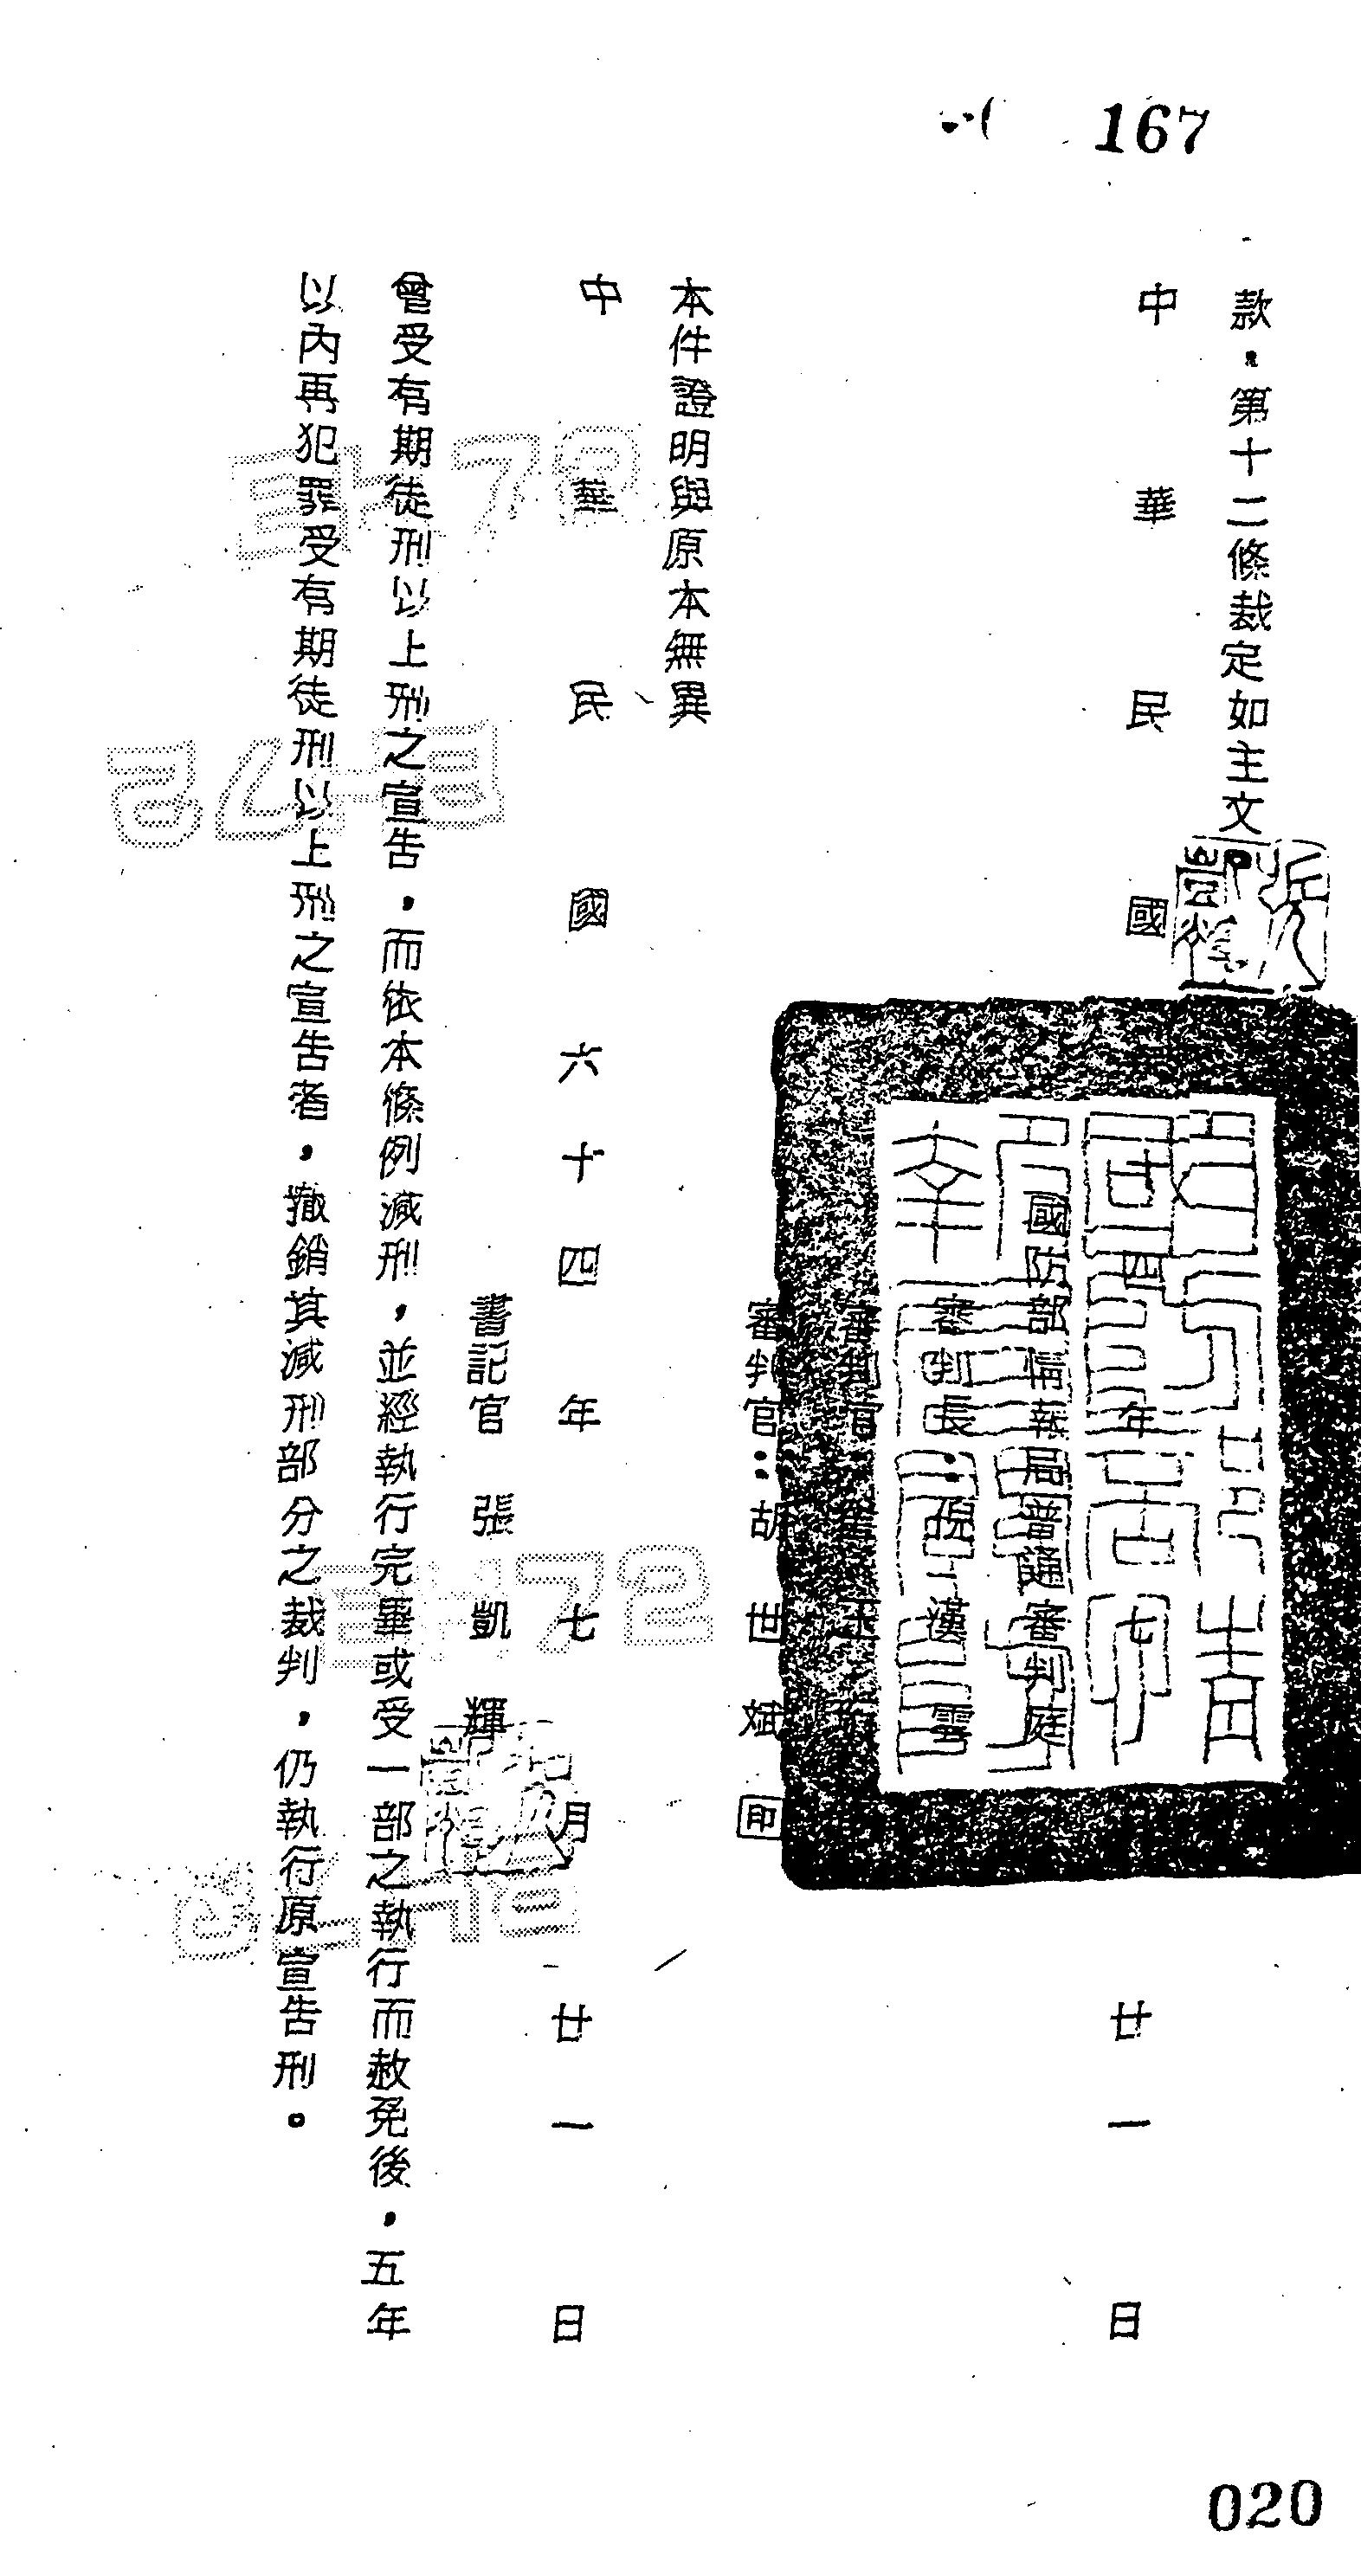 167
款。第十二條裁定如主文。
中華民國 四年七 廿一日
國防部情報局普通審判庭
審判長：倪漢雲
審判官：
審判官：胡世斌 印
本件證明與原本無異
中華民國六十四年七月廿一日
書記官 張凱輝
曾受有期徒刑以上刑之宣告，而依本條例減刑，並經執行完畢或受一部之執行而赦免後，五年
以內再犯罪受有期徒刑以上刑之宣告者，撤銷其減刑部分之裁判，仍執行原宣告刑。
020